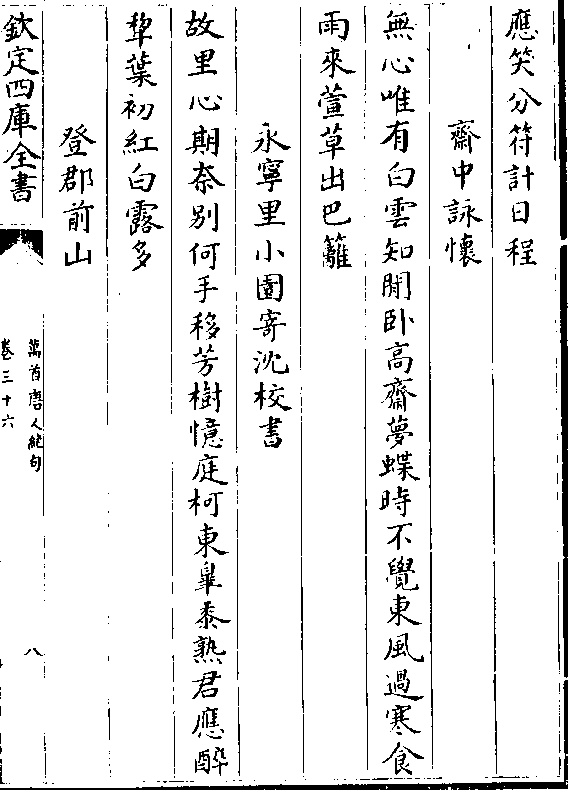 應笑分符計日程
齋中詠懷
無心唯有白雲知閒臥高齋夢蝶時不覺東風過寒食
雨來萱草出巴籬
永寧里小園寄沈校書
故里心期奈別何手移芳樹憶庭柯東臯黍熟君應醉
犂葉初紅白露多
登郡前山
欽定四庫全書
萬首唐人絶句
卷三十六
八